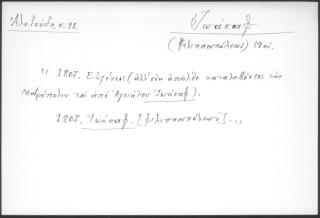 Ἀλεξούδη, σ. 98.
Ἰωάσαφ
(Φιλιππουπόλεως) 19ος.
" 1807. Εὐγένιος (ἀλλ' οὐκ ἀπῆλθε καταλαβόντος τὴν
Μητρόπολιν τοῦ ἀπὸ Ἀγχιάλου Ἰωάσαφ).
1807. Ἰωάσαφ. [Φιλιππουπόλεως]. "